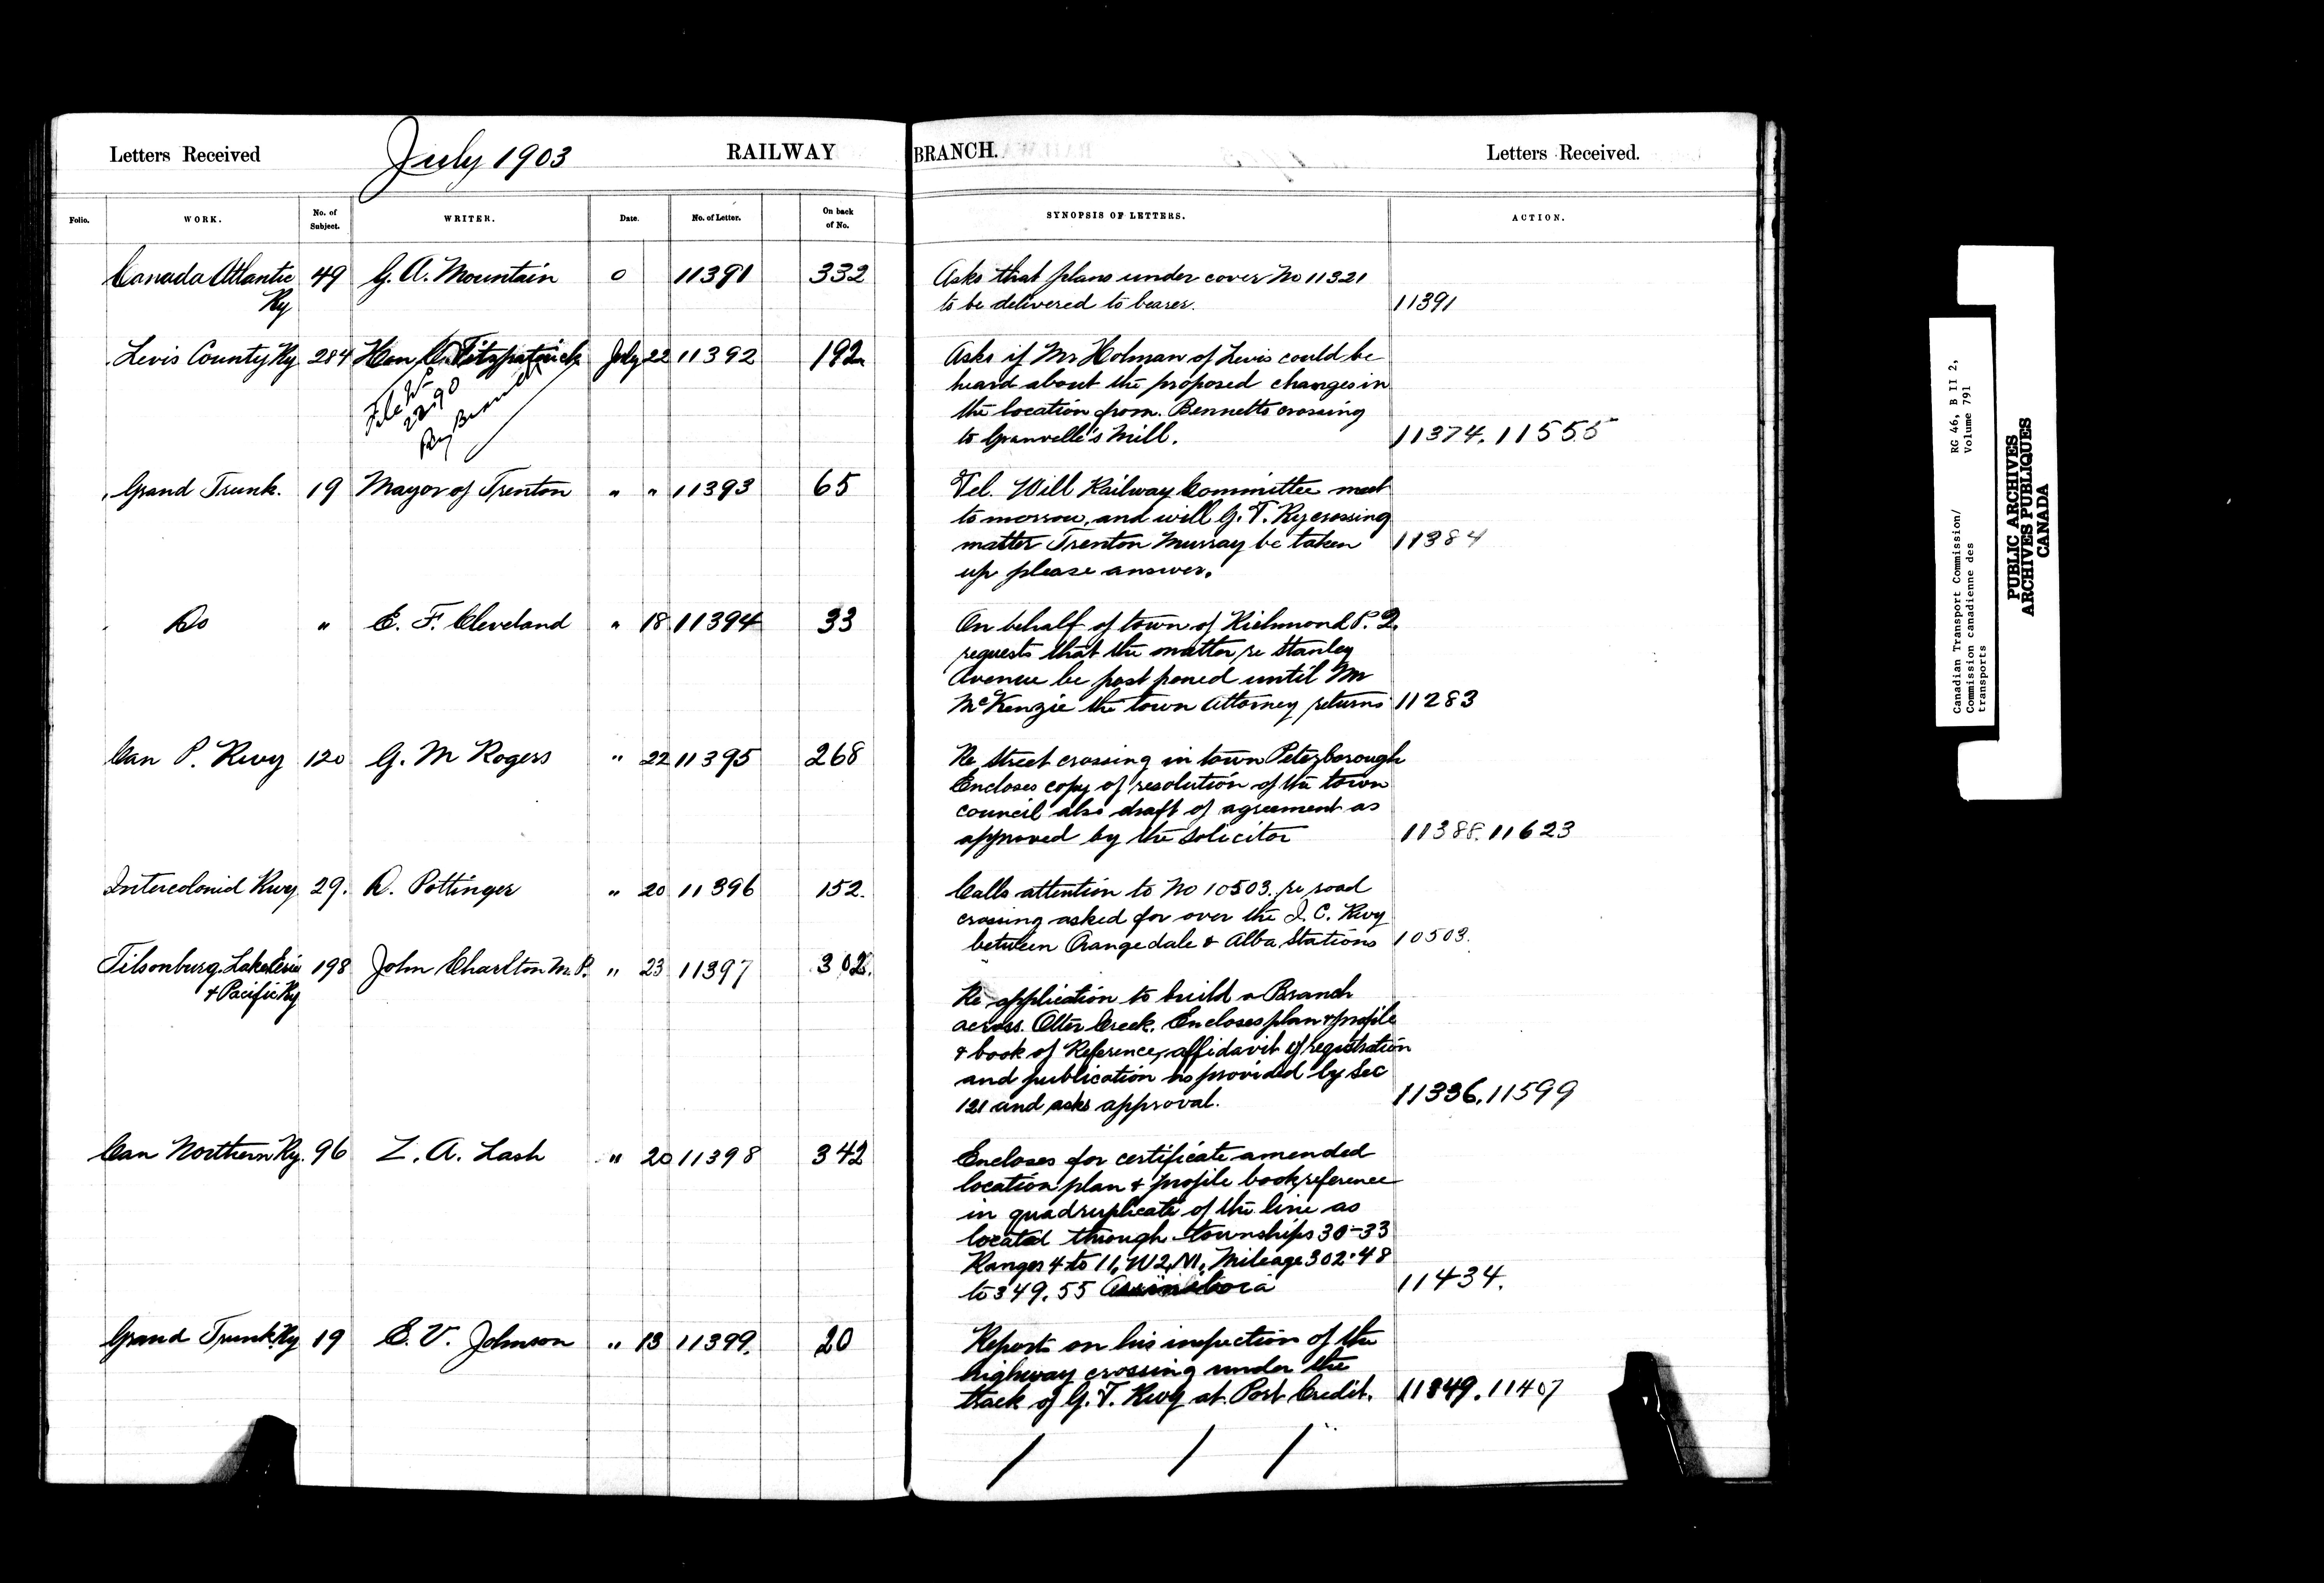 Letters Received July 1903 RAILWAY BRANCH. Letters Received.
Folio. WORK. No. of Subject. WRITER. Date. No. of Letter. On back of No. SYNOPSIS OF LETTERS. ACTION.
Canada Atlantic Ry 49 G. A. Mountain 0 11391 332
Asks that plans under cover No 11321
to be delivered to bearer. 11391
Levis County Ry 284 Hon C. Fitzpatrick July 22 11392 192
File No
2290
Ry Branch
Asks if Mr Holman of Levis could be
heard about the proposed changes in
the location from. Bennetts crossing
to Granville's Mill. 11374. 11555
Grand Trunk. 19 Mayor of Trenton " " 11393 65
Tel. Will Railway Committee meet
to morrow, and will G. T. Ry crossing
matter Trenton Murray be taken 11384
up please answer.
Do " E. F. Cleveland " 18 11394 33
On behalf of town of Richmond P. Q.
requests that the matter re Stanley
Avenue be post poned until Mr
McKenzie the town Attorney returns 11283
Can P. Rwy 120 G. M Rogers " 22 11395 268
Re street crossing in town Peterborough
Encloses copy of resolution of the town
council also draft of agreement as
approved by the solicitor 11388. 11623
Intercolonid Rwy 29. D. Pottinger " 20 11396 152.
Calls attention to No 10503. re road
crossing asked for over the I. C. Rwy
between Orangedale & Alba Stations 10503.
Tilsonburg Lake Erie & Pacific Ry 198 John Charlton M. P. " 23 11397 302.
Re application to build a Branch
across. Otter Creek. Encloses plan & profile
& book of Reference, affidavit of registration
and publication as provided by Sec
121 and asks approval. 11336. 11599
Can Northern Ry. 96 Z. A. Lash " 20 11398 342
Encloses for certificate amended
location plan & profile book reference
in quadruplicate of the line as
located through townships 30-33
Ranges 4 to 11, W2, M, Mileage 302.48
to 349.55 Assiniboia 11434.
Grand Trunk Ry 19 E. V. Johnson " 13 11399. 20
Reports on his inspection of the
highway crossing under the
track of G. T. Rwy at Port Credit. 11349. 11407
Canadian Transport Commission/
Commission canadienne des
transports
RG 46, B II 2,
Volume 791
PUBLIC ARCHIVES
ARCHIVES PUBLIQUES
CANADA